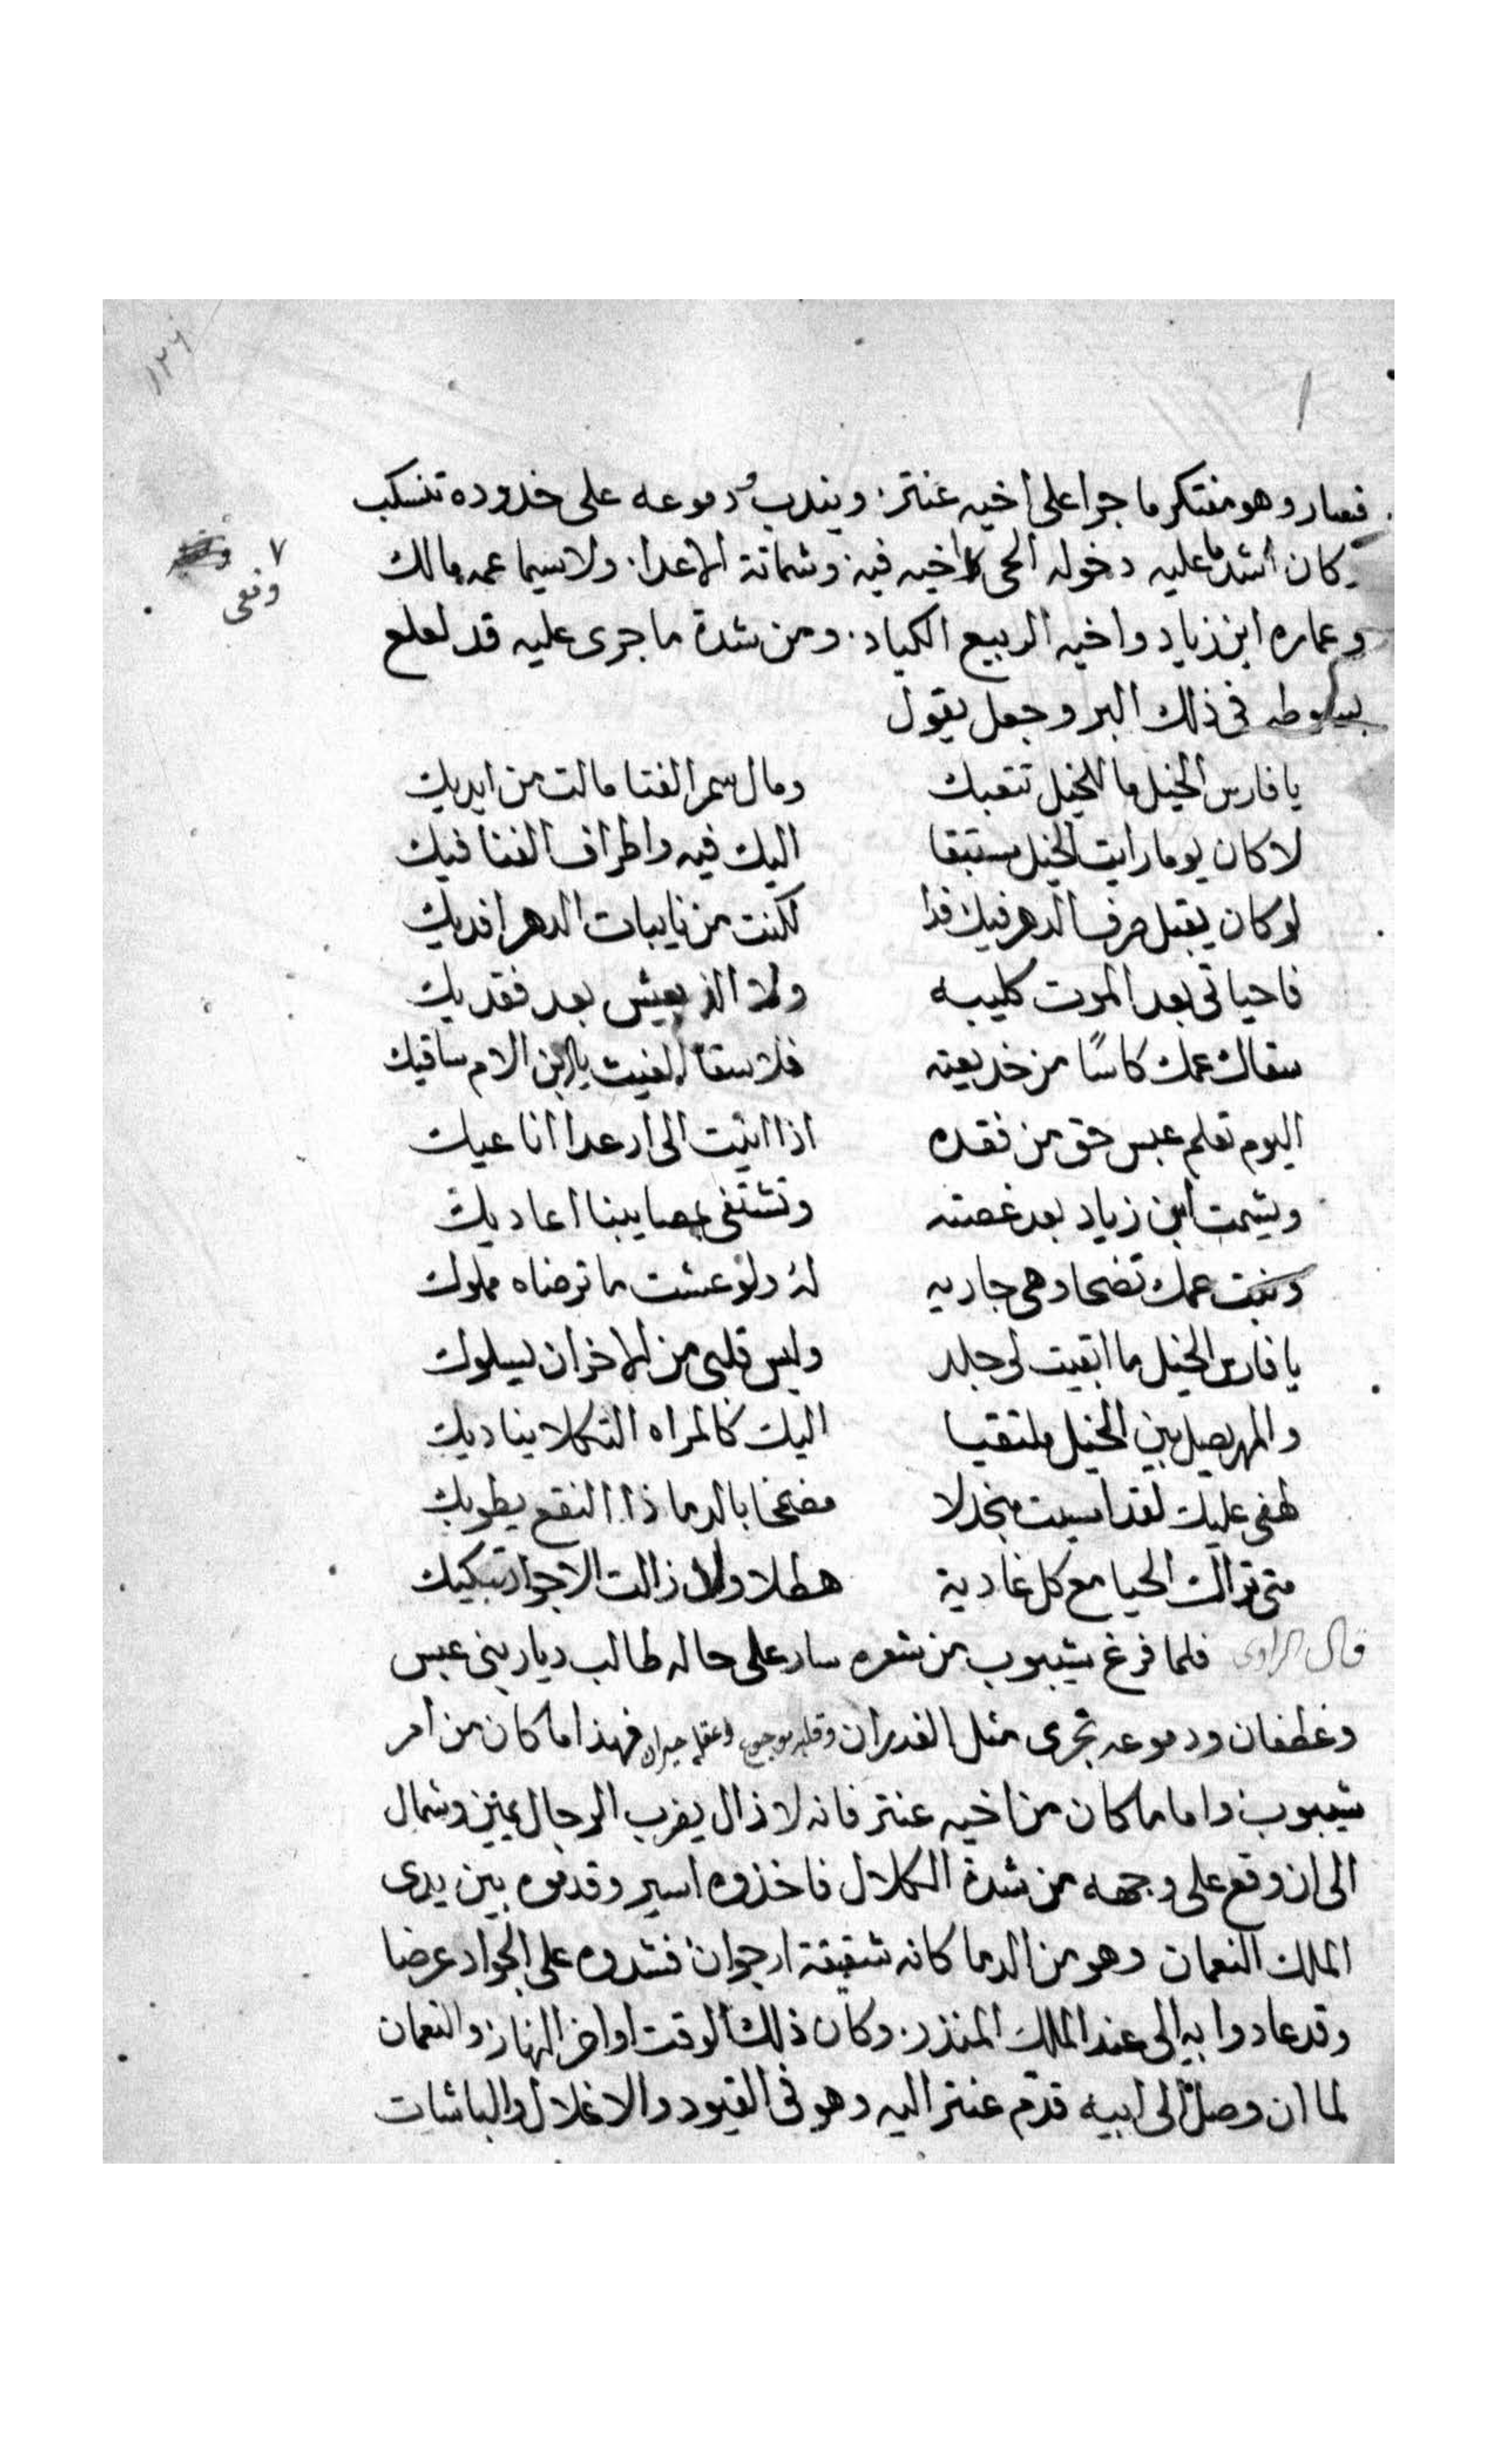 ١٢٦
١
فصار وهو مفتكر ما جرا على اخيه عنتر. ويندب ودموعه على خدوده تنسكب
وكان اشد ما عليه دخوله الحى اخيه فيه وشماتة الاعدا. ولا سيما عمه مالك
٧
ونعى
وعماره ابن زياد واخيه الربيع الكياد. ومن شدة ما جرى عليه قد لعلع
فى ذلك البر وجعل يقول
يا فارس الخيل ما للخيل تنعيك ومال سمر القنا مالت من ايديك
لا كان يوما رايت الخيل مستبقا اليك فيه واطراف القنا فيك
لو كان يقبل صرف الدهر فيك فدا لكنت من نايبات الدهر افديك
فاحياتى بعد الموت كليبه ولا الذ بعيش بعد فقديك
سقاك عمك كاسًا من خديعته فلا سقا الغيث يابن الام ساقيك
اليوم تعلم عبس حق من فقده اذا اتيت الى ارعدا اناعيك
ويشمت ابن زياد بعد غصته وتشتفى بمصايبنا اعاديك
وبنت عمك تضحا وهى جاريه له ولو عشت ما ترضاه مملوك
يا فارس الخيل ما ابقيت لى جلد وليس قلبى من الاخزان يسلوك
والمهر يصيل بين الخيل ملتقيا اليك كالمراه التكلا يناديك
لهفى عليك لقد امسيت منجدلا مضمخا بالدما ذا النقع يطويك
متى تراك الحيا مع كل غادية هطلا ولا زالت الاجواد تبكيك
قال الراوى فلما فرغ شيبوب من شعره سار على حاله طالب ديار بنى عبس
وغطفان ودموعه تجرى مثل الغدران وقلبه موجوع وعقله حيران فهذا ما كان من امر
شيبوب واما ما كان من اخيه عنتر فانه لا زال يضرب الرجال يمين وشمال
الى ان وقع على وجهه من شدة الكلال فاخذوه اسير وقدموه بين يدى
الملك النعمان وهو من الدما كانه شقيقة ارجوان فشدوه على الجواد عرضا
وقد عادوا به الى عند الملك المنذر. وكان ذلك الوقت اواخر النهار والنعمان
لما ان وصل الى ابيه قدّم عنتر اليه وهو فى القيود والاغلال والباشات